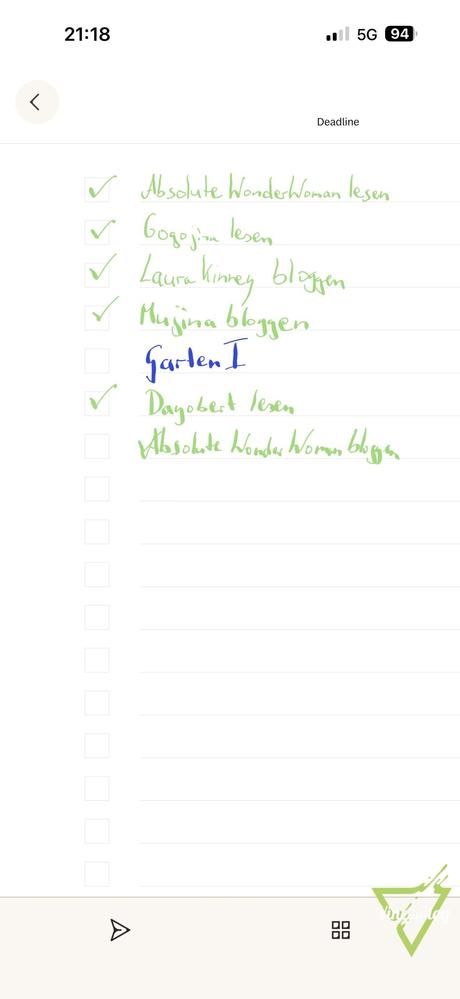 21:18
5G 94
Deadline
Absolute WonderWoman lesen
Gogojira lesen
Laura Kinney bloggen
Mujina bloggen
Garten I
Dagobert lesen
Absolute Wonder Woman bloggen